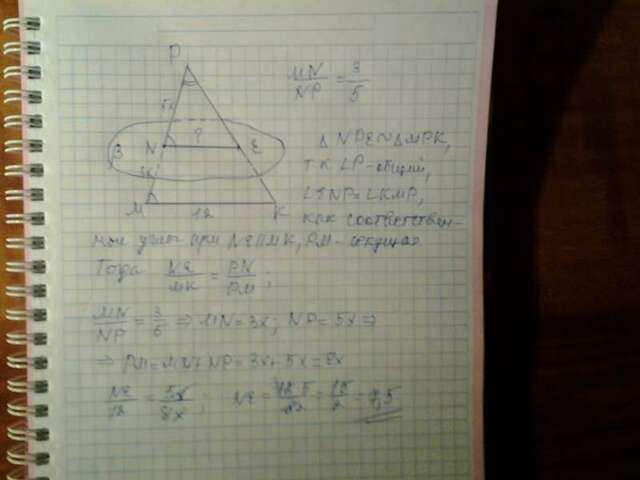 P
MN/NP = 3/5
5x
N ? E
B
M 12 K
Δ NPE ∾ Δ MPK,
т.к ∠P - общий,
= ∠KMP,
как соответствен-
ные углы при NE || MK, PM - секущая.
Тогда NE/MK = PN/PM;
MN/NP = 3/5 ⇒ MN = 3x; NP = 5x ⇒
⇒ PM = MN + NP = 3x + 5x = 8x
NE/12 = 5x/8x; NE = = 15/2 = 7,5